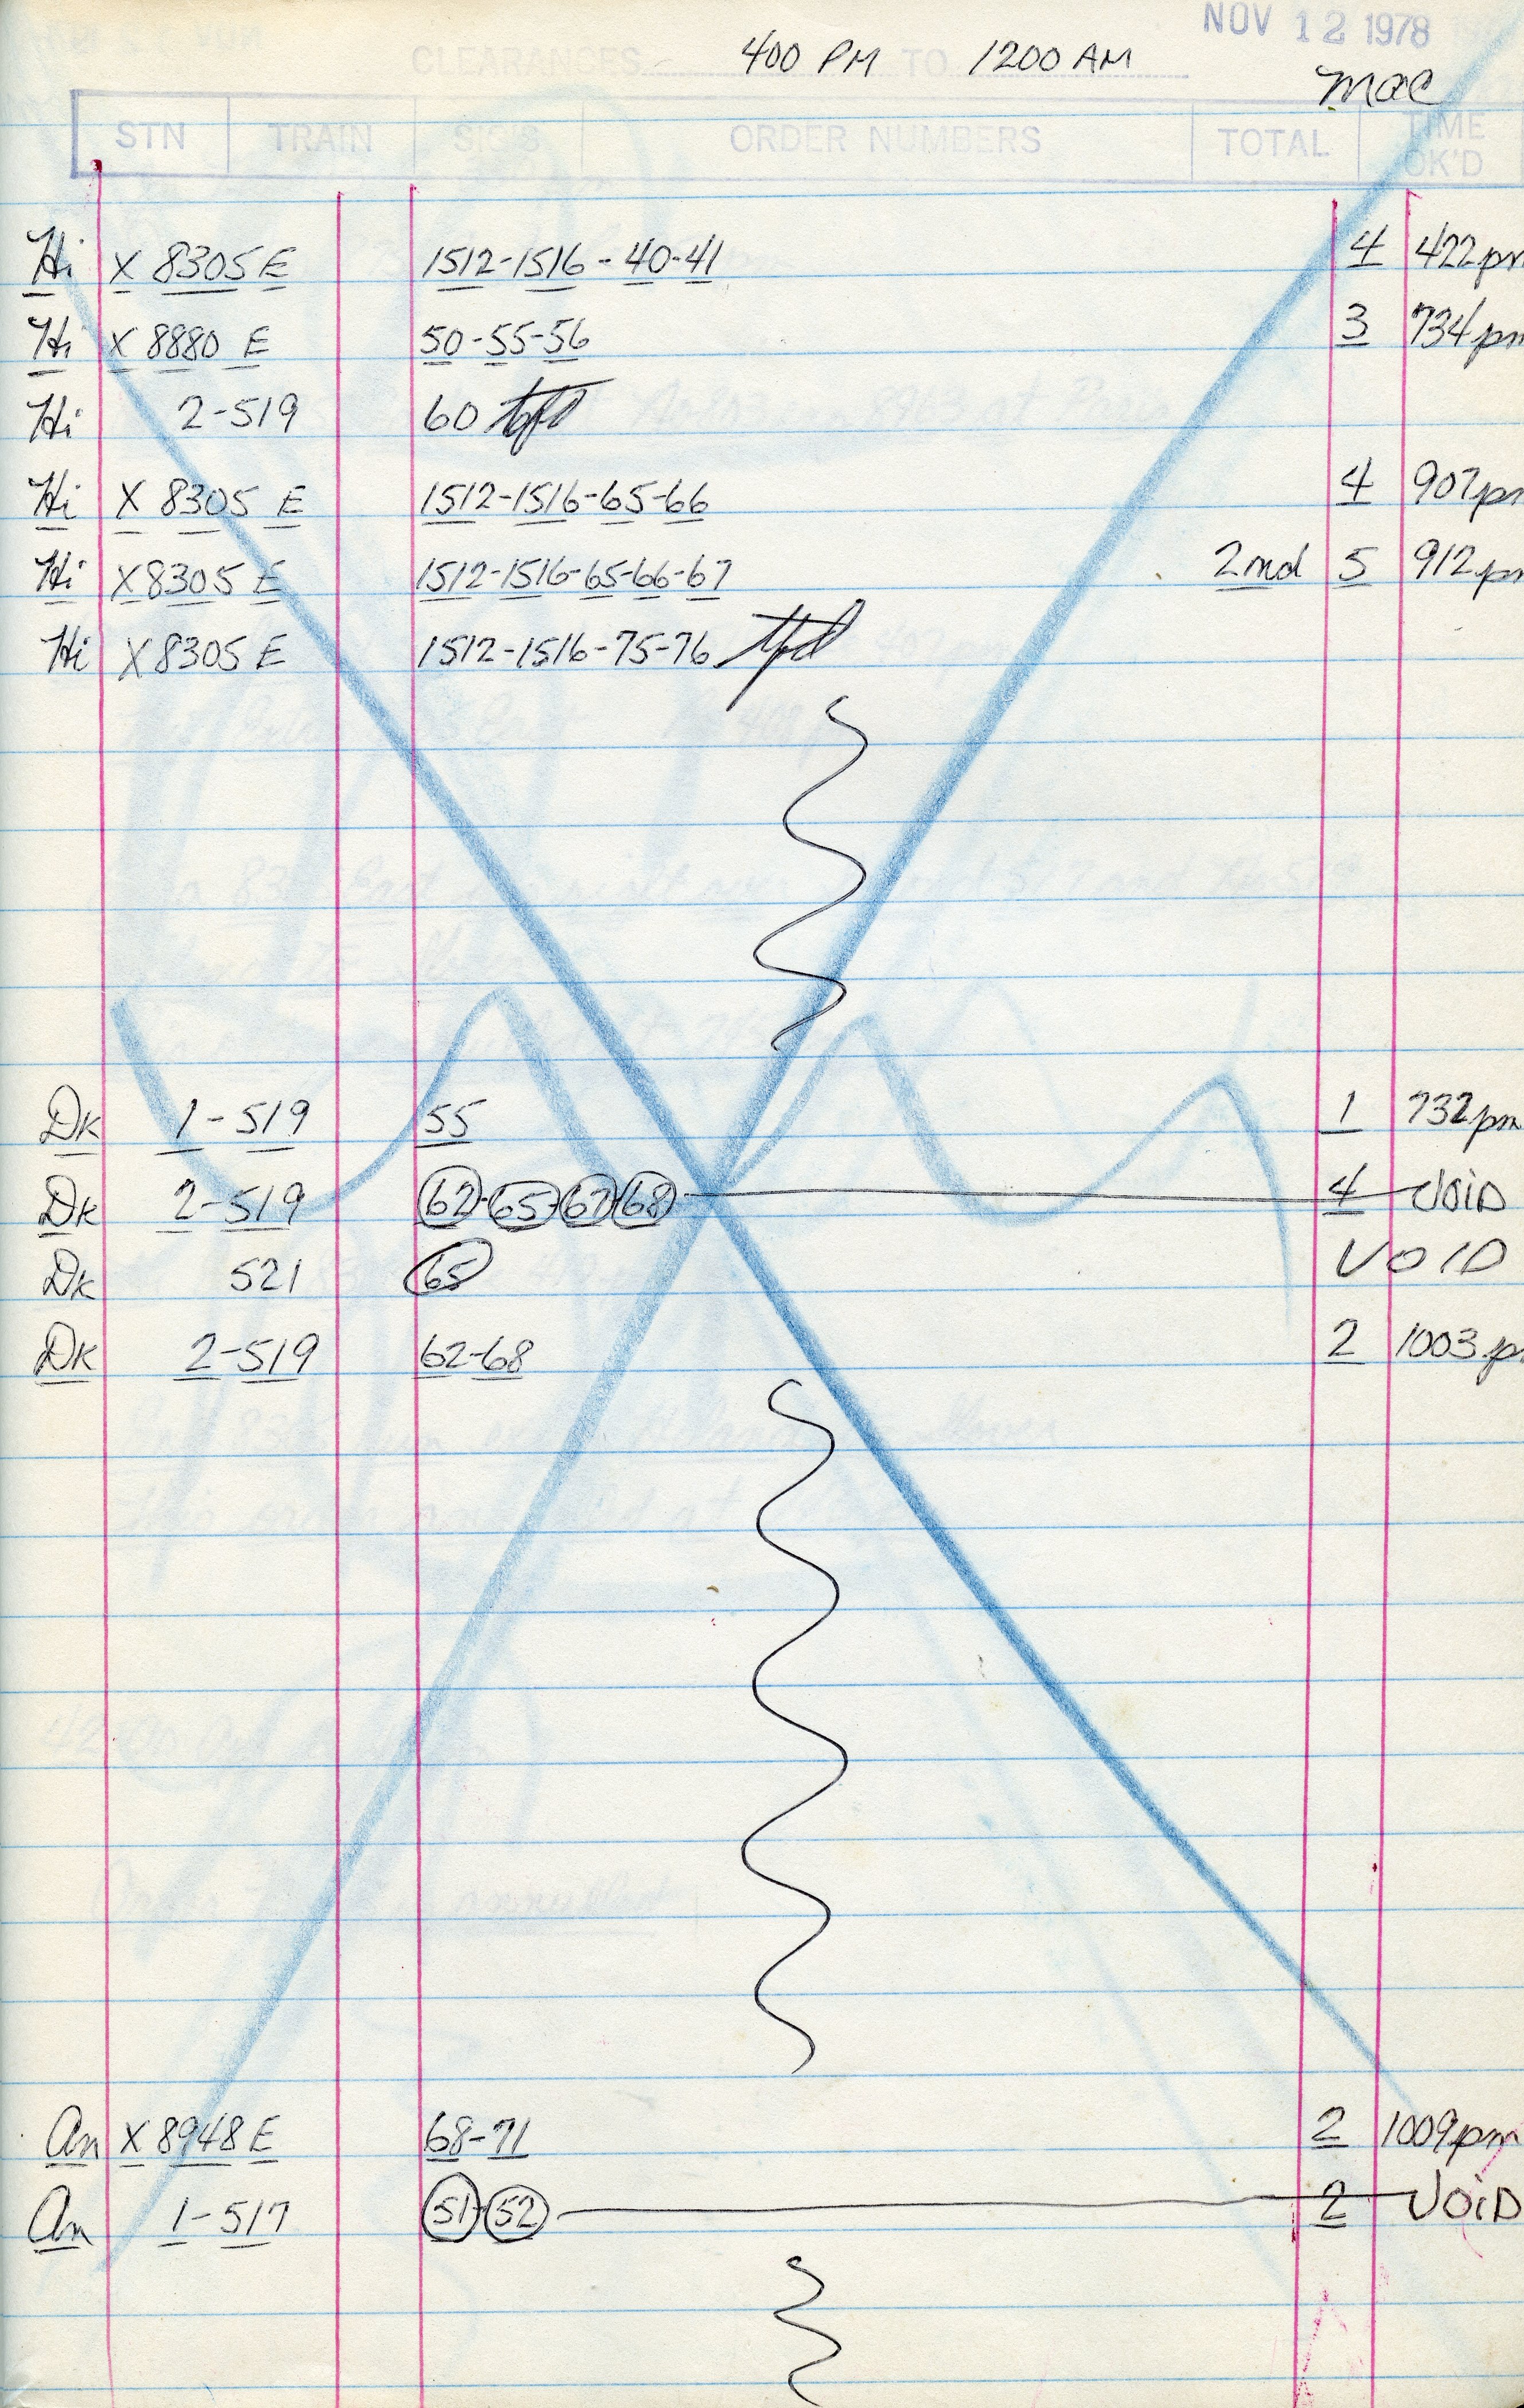 NOV 12 1978
CLEARANCES 400 PM TO 1200 AM
mac
STN TRAIN SIG'S ORDER NUMBERS TOTAL TIME OK'D
Hi X 8305 E 1512-1516-40-41 4 422pm
Hi X 8880 E 50-55-56 3 734pm
Hi 2-519 60 tfd
Hi X 8305 E 1512-1516-65-66 4 907pm
Hi X 8305 E 1512-1516-65-66-67 2nd 5 912pm
Hi X 8305 E 1512-1516-75-76 tfd
Dk 1-519 55 1 732pm
Dk 2-519 62-65-67-68 4 VOID
Dk 521 65 VOID
Dk 2-519 62-68 2 1003 p
An X 8948 E 68-71 2 1009pm
An 1-517 51-52 2 VOID